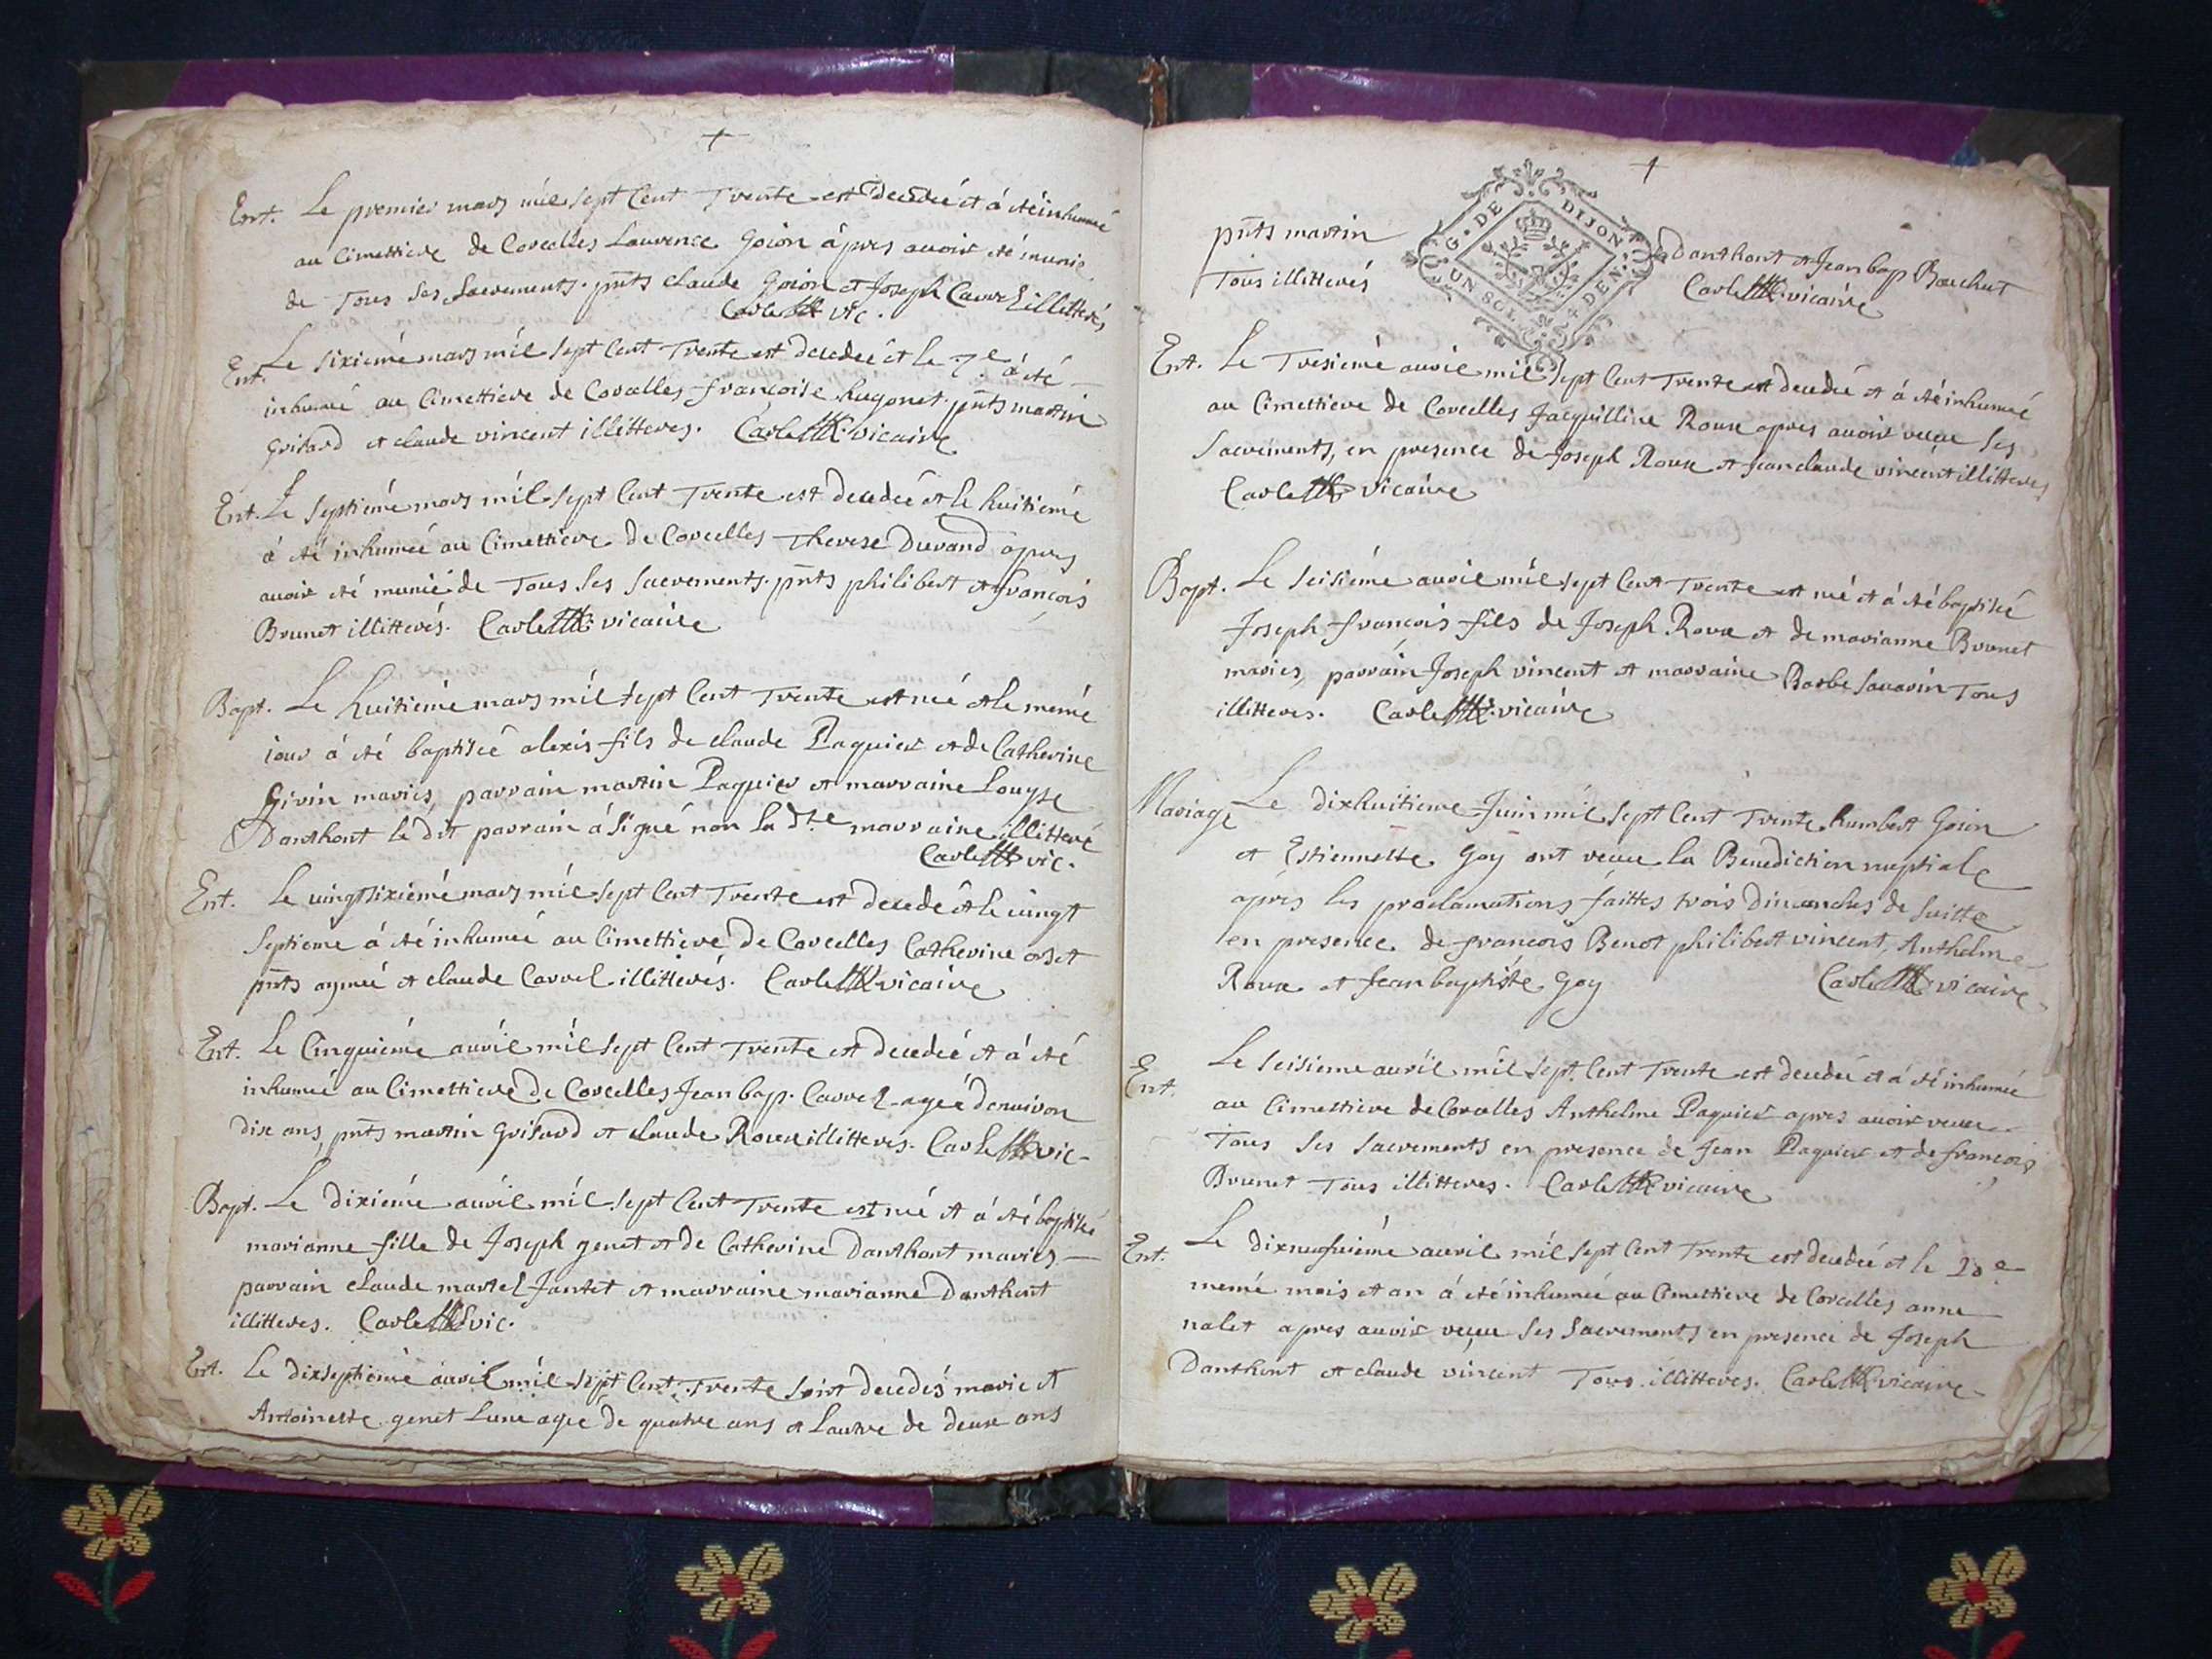 +
Ent. Le premier mars mil sept Cent Trente est decedée et á été inhumée
au Cimettiere de Corcelles Laurence Goion ápres auoir été munie
de Tous ses Sacrements. pnts claude Goion et Joseph Carrel illitterés
Carle vic.
Ent. Le sixiemé mars mil sept Cent Trente est decedeé et le 7.e á été
inhumeé au Cimettiere de Corcelles francoise hugonet pnts martin
Grisard et claude vincent illitteres. Carle vicaire
Ent. Le septiemé mars mil sept Cent Trente est decedeé et le huitiemé
á été inhumeé au Cimettiere de Corcelles Therese Durand ápres
auoir été munié de Tous ses sacrements. pnts philibert et francois
Brunet illitterés. Carle vicaire
Bapt. Le huitiemé mars mil sept Cent Trente est né et le memé
iour á été baptiseé alexis fils de claude Paquier et de Catherine
Girin mariés, parrain martin Paquier et marraine Louyse
Danthont le dit parrain á signé nón la dte marraine illitteré
Carle vic.
Ent. Le uingtsixiemé mars mil sept Cent Trente est decedé et le uingt
septieme á été inhumeé au Cimettiere de Corcelles Catherine orset
pnts aymé et claude Carrel illitterés. Carle vicaire
Ent. Le Cinquiémé auril mil sept Cent Trente est decedeé et á été
inhumeé au Cimettiere de Corcelles Jean bap. Carrel ageé denuiron
dix ans, pnts martin Grisard et claude Roux illitteres. Carle vic.
Bapt. Le dixiéme auril mil sept Cent Trente est né et á été baptiseé
marianne fille de Joseph genet et de Catherine Danthont mariés
parrain claude martel Jantet et marraine marianné Danthont
illitteres. Carle vic.
Ent. Le dixseptiemé áuril mil sept Cent Trente sont decedés marie et
Antoinette genet Lune ageé de quatre ans et Lautre de deux ans
+
G. DE DIJON
UN SOL 4 DEN.
pnts martin Danthont et Jean bap Bauchut
Tous illitterés Carle vicaire
Ent. Le Tresiemé auril mil sept Cent Trente est decedeé et á été inhumeé
au Cimettiere de Corcelles Jacquilline Roux apres auoir reçeu ses
sacrements, en presence de Joseph Roux et Jean claude vincent illitteres
Carle vicaire
Bapt. Le seisiéme auril mil sept Cent Trente est né et á été baptisé
Joseph francois fils de Joseph Roux et de marianne Brunet
mariés, parráin Joseph vincent et marraine Barbe Sauarin Tous
illitteres. Carle vicáire
Mariage Le dixhuitieme Juin mil sept Cent Trente humbert Goion
et Estiennette Goy ont reçeu la Benediction nuptiale
aprés les proclamations faittes trois Dimanches de suitte
en presence de francois Benot philibert vincent, Anthelme
Roux et Jean baptiste Goy Carle vicaire
Ent. Le seisieme auril mil sept Cent Trente est decedeé et á été inhumeé
au Cimettiere de Corcelles Anthelme Paquier apres auoir reçeu
Tous ses sacrements en presence de Jean Paquier et de francois
Brunet Tous illitteres. Carle vicaire
Ent. Le dixneufuiéme auril mil sept Cent Trente est decedeé et le 20e
memé mois et an á été inhumeé au Cimettiere de Corcelles anne
nalet apres auoir reçeu ses Sacrements en presence de Joseph
Danthont et claude vincent Tous illitteres. Carle vicaire